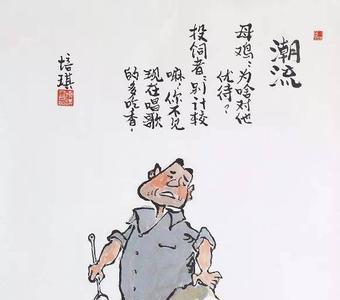 潮流
母鸡：为啥对他
优待？
投饲者：别计较
嘛，你不见
现在唱歌
的多吃香。
培琪